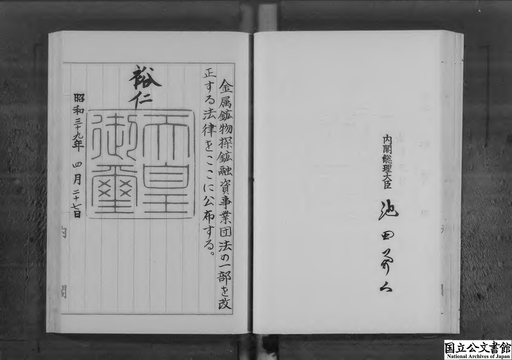 金属鉱物探鉱融資事業団法の一部を改
正する法律をここに公布する。
裕仁
天皇
御璽
昭和三十九年四月二十七日
内閣総理大臣
池田勇人
国立公文書館
National Archives of Japan